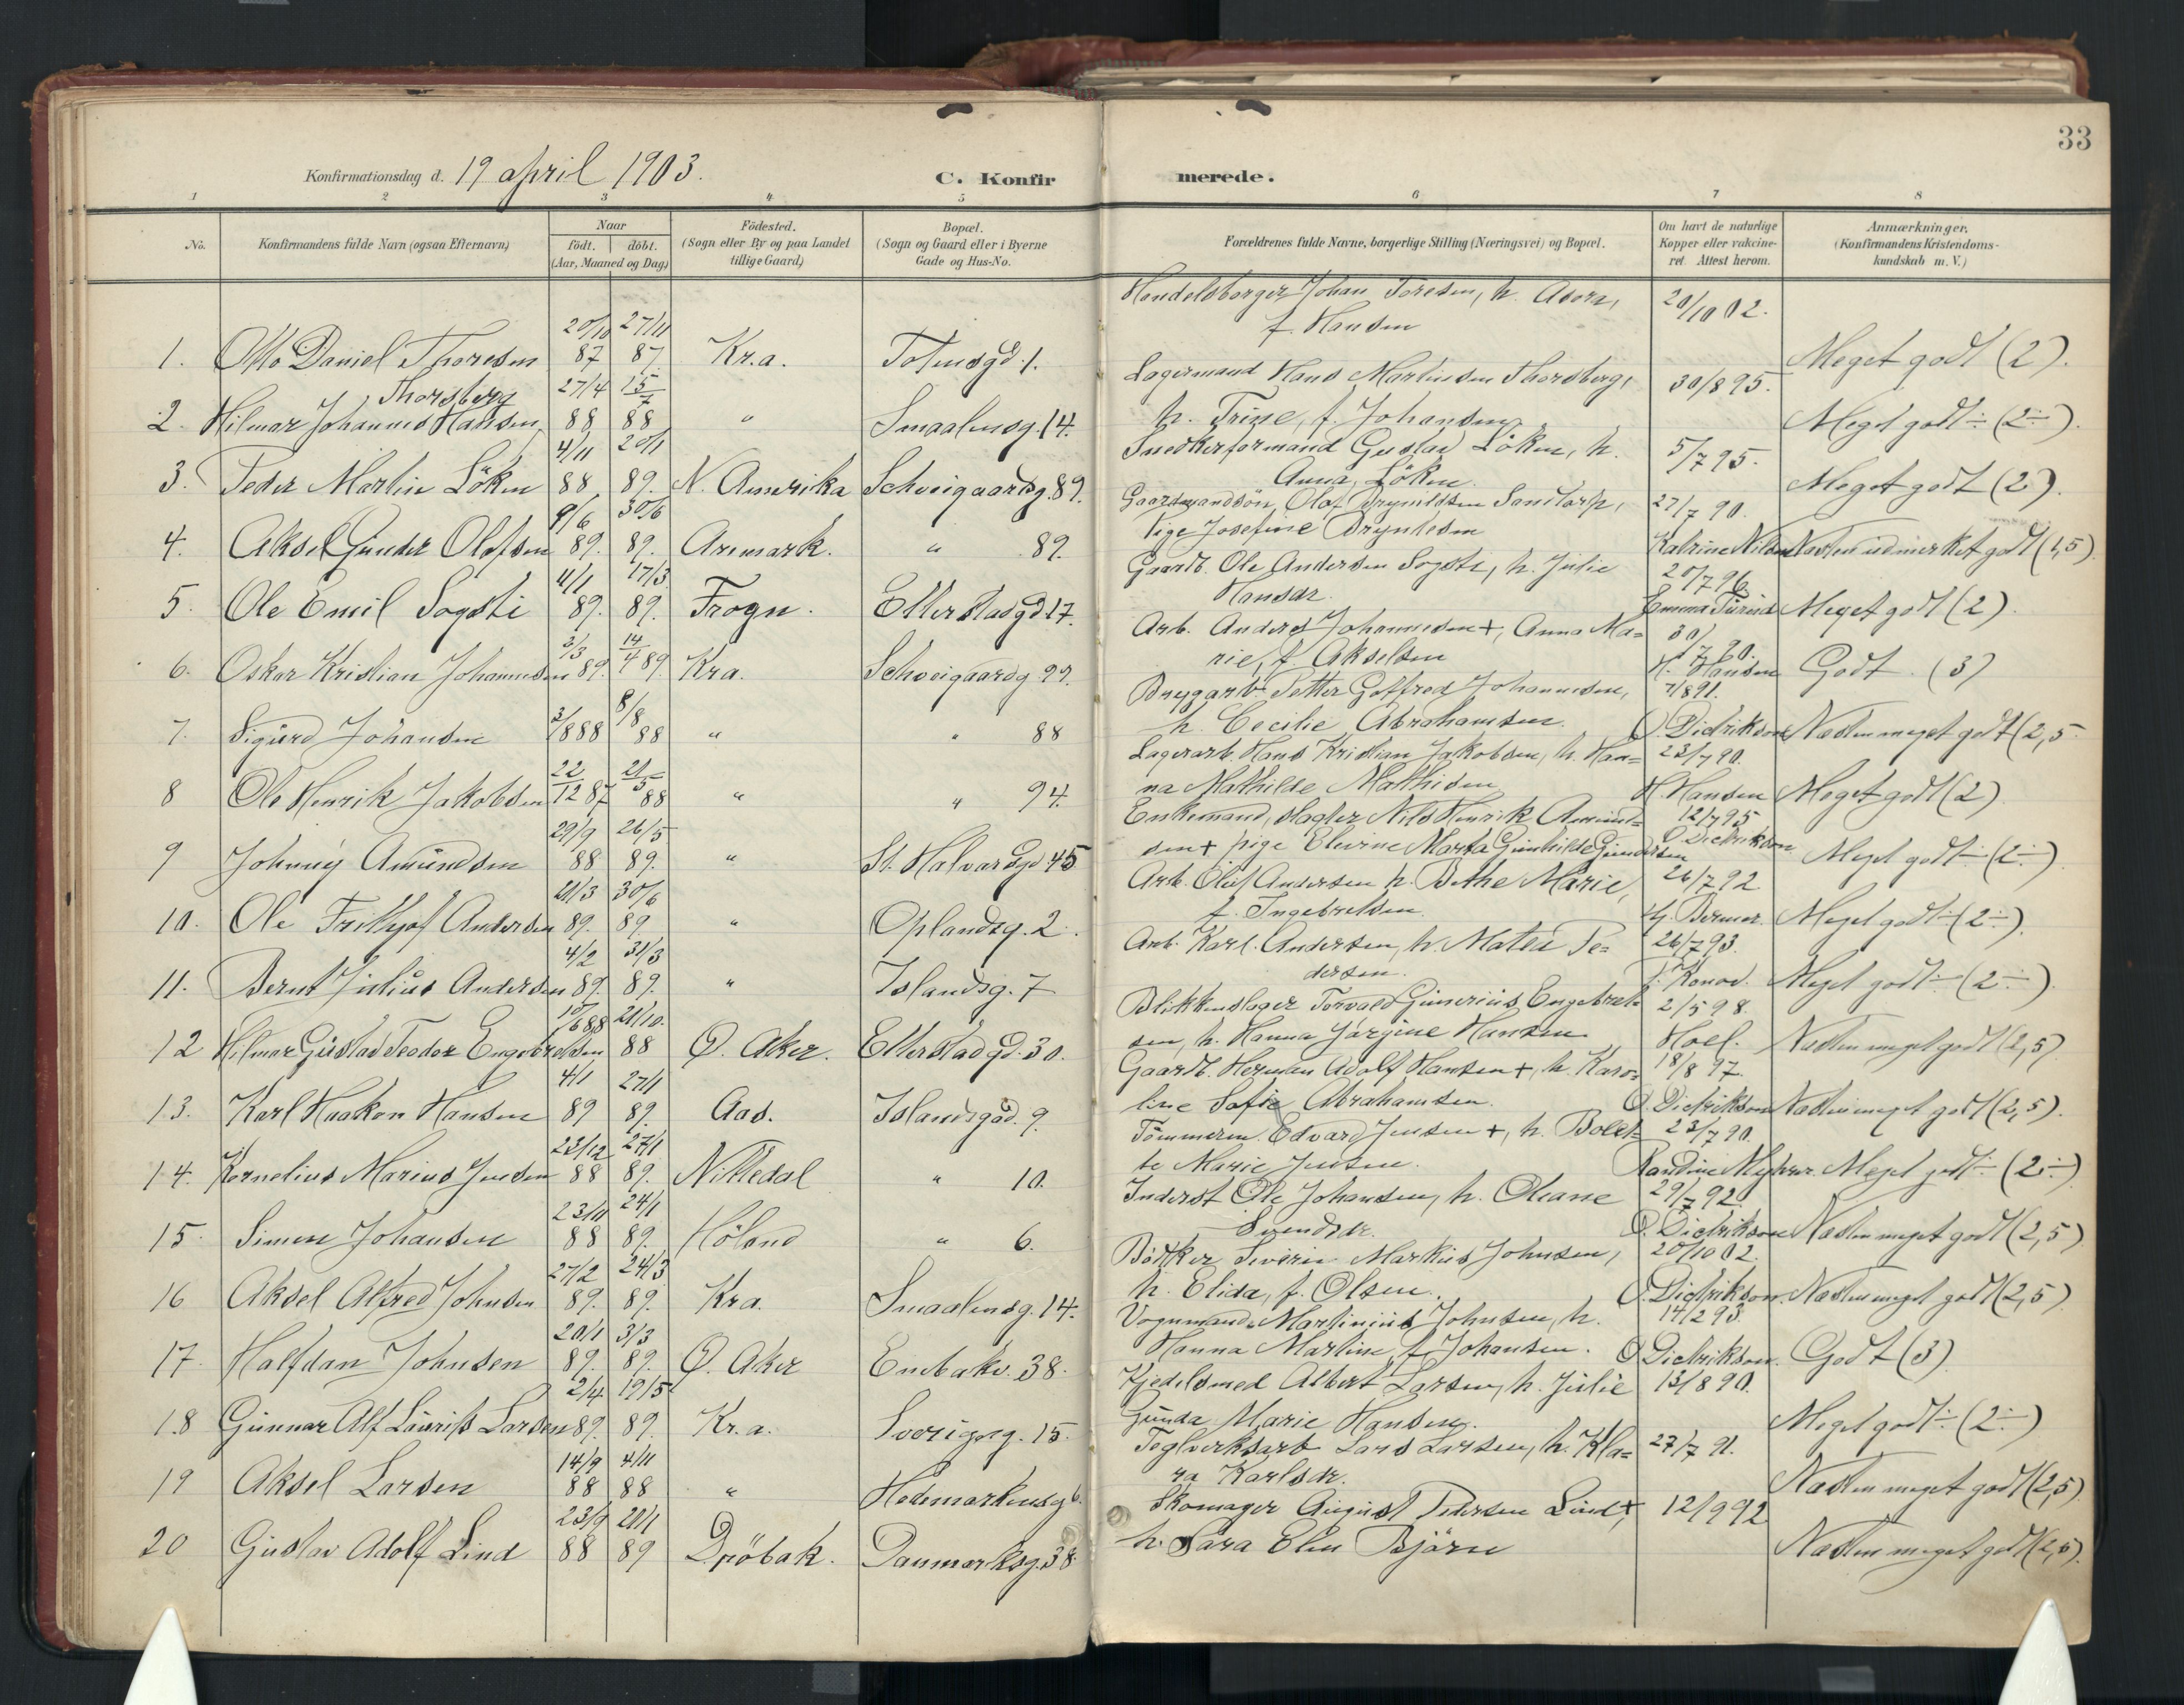 33
Konfirmationsdag d. 19 april 1903.
C. Konfirmerede.
1 2 3 4 5 6 7 8
No. Konfirmandens fulde Navn (ogsaa Efternavn) Naar født. døbt. (Aar, Maaned og Dag) Fødested. (Sogn eller By og paa Landet tillige Gaard) Bopæl. (Sogn og Gaard eller i Byerne Gade og Hus-No. Forældrenes fulde Navne, borgerlige Stilling (Næringsvei) og Bopæl. Om havt de naturlige Kopper eller vakcineret. Attest herom. Anmærkninger. (Konfirmandens Kristendomskundskab m. V.)
1. Otto Daniel Thoresen 20/10 87 27/11 87 Kr.a. Totensgd. 1. Handelsborger Johan Toresen, h. f. Hansen 20/10 02. Meget godt (2).
2. Hilmar Johannes Hansen Thorsberg 27/4 88 15/7 88 " Smaalensg. 14. Lagermand Hans Martinsen Thorsberg, h. Trine, f. Johansen 30/8 95. Meget godt÷ (2÷).
3. Peder Martin Löken 4/11 88 20/1 89. N. Amerika Schveigaardsg. 89. Snedkerformand Gustav Löken, h. Anna Löken. 5/7 95. Meget godt (2).
4. Aksel Gunder Olafsen 9/6 89. 30/6 89. Aremark. " 89. Gaardmandsön Olaf Brynildsen, Pige Josefine 27/7 90. Katrine Nilsen Næsten udmerket godt (1,5)
5. Ole Emil Sogsti 11/1 89. 17/3 89. Frogn. Etterstadgd 17. Gaardb. Ole Andersen Sogsti, h. Julie Hansdr. 20/7 96 Emma Meget godt (2)
6. Oskar Kristian Johannesen 3/3 89. 14/4 89. Kra. Schveigaardsg. 99. Arb. Anders Johannesen +, Anna Marie, f. Akselsen 30/7 90. H. Hansen Godt. (3)
7. Sigurd Johansen 3/8 88 8/8 88 " " 88 Brygarb. Petter Gotfred Johannesen, h. Cecilie Abrahamsen. 7/8 91. O. Didrikson Næsten meget godt (2,5
8 Ole Henrik Jakobsen 22/12 87 21/5 88 " " 94. Lagerarb. Hans Kristian Jakobsen, h. Hanna Mathilde Mathisen 23/7 90. H. Hansen Meget godt (2)
9 Johnny Amundsen 29/9 88 26/5 89. " St. Halvardsgd 45 Enkemand, slagter Nils Henrik Amundsen + pige Elevine Marta Gunhilde Gundersen 12/7 95 O. Didrikson Meget godt÷ (2÷)
10. Ole Frithjof Andersen 21/3 89. 30/6 89 " Oplandsg. 2. Arb. Oluf Andersen h. Bethe Marie, f. Ingebretsen. 26/7 92 Meget godt÷ (2÷).
11. Bernt Julius Andersen 4/2 89. 31/3 89. " Islandsg. 7 Arb. Karl Andersen, h. Matea Pedersen. 26/7 93. J. Konow. Meget godt÷ (2÷)
12 Hilmar Gustav Teodor Engebretsen 10/6 88 21/10. 88 Ø. Aker. Etterstadgd. 30. Blikkenslager Torvald Gunerius Engebretsen, h. Hanna Jörgine Hansen 2/5 98. Hoel. Næsten meget godt (2,5)
13. Karl Haakon Hansen 4/1 89 27/1 89. Aas. Islandsgad. 9. Gaardb. Herman Adolf Hansen +, h. Karoline Sofie Abrahamsen. 18/8 97. O. Didrikson Næsten meget godt (2,5).
14. Kornelius Marius Jensen 23/12 88 27/1 89. Nittedal " 10. Tömmerm. Edvard Jensen +, h. Bolette Marie Jensen. 23/7 90. Meget godt÷ (2÷)
15. Simen Johansen 23/11 88 24/1 89. Höland " 6. Inderst Ole Johansen, h. Oleane Svendsdr. 29/7 92. O. Didrikson Næsten meget godt (2,5)
16 Aksel Alfred Johnsen 27/2 89. 24/3 89. Kra. Smaalensg. 14. Bödker Severin Markus Johnsen, h. Elida, f. Olsen. 20/10 02. O. Didrikson. Næsten meget godt (2,5)
17. Halfdan Johnsen 20/1 89. 3/3 89. Ø. Aker Enebakv. 38. Vognmand Martinius Johnsen, h. Hanna Martine, f. Johansen. 14/2 93. O Didrikson. Godt (3)
18 Gunnar Alf Laurits Larsen 2/4 89. 19/5 89. Kr.a. Sverigesg. 15. Kjedelsmed Albert Larsen, h. Julie Gunda Marie Hansen. 13/8 90. Meget godt÷ (2÷)
19 Aksel Larsen 14/9 88 4/11 88 " Hedemarkensg 6. Teglverksarb Lars Larsen, h. Klara Karlsdr. 27/7 91. Næsten meget godt (2,5)
20 Gustav Adolf Lind 23/9 88 21/1 89 Dröbak. Danmarksg. 38. Skomager August Pedersen Lind +, h. Sara Elen Björn 12/9 92 Næsten meget godt (2,5).